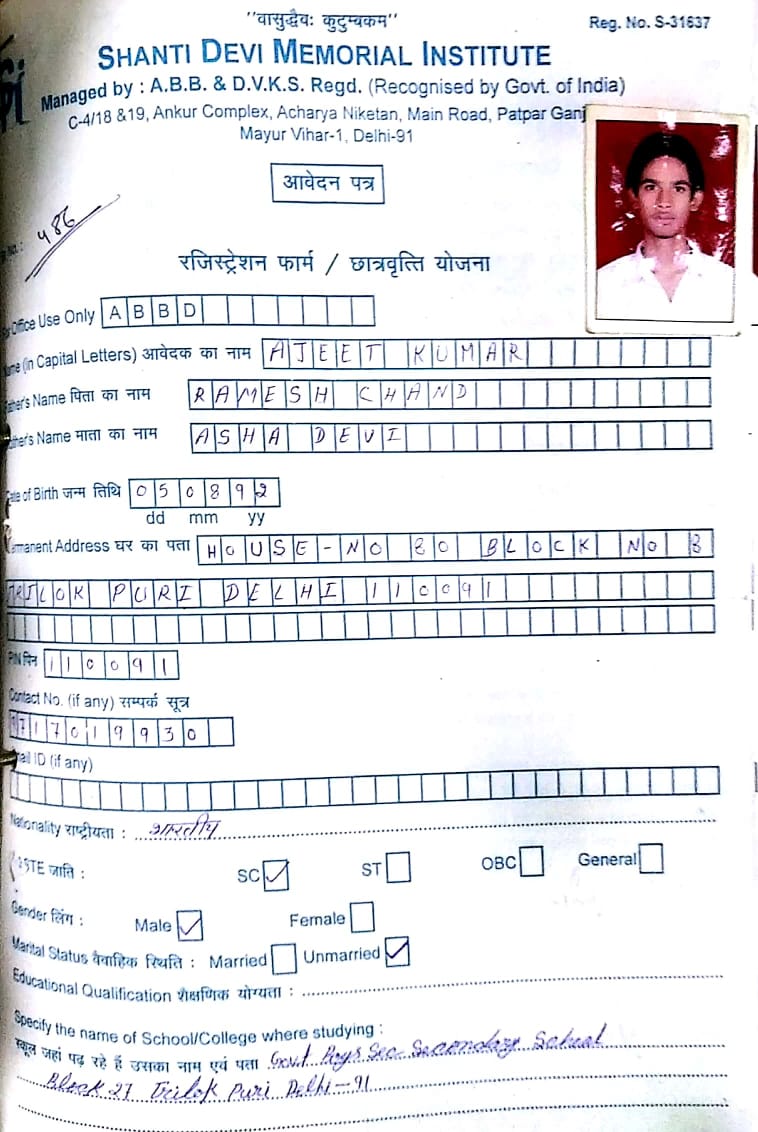 "वासुद्धैवः कुटुम्बकम"
Reg. No. S-31637
SHANTI DEVI MEMORIAL INSTITUTE
Managed by : A.B.B. & D.V.K.S. Regd. (Recognised by Govt. of India)
C-4/18 &19, Ankur Complex, Acharya Niketan, Main Road, Patpar Ganj
Mayur Vihar-1, Delhi-91
आवेदन पत्र
No.: 486
रजिस्ट्रेशन फार्म / छात्रवृत्ति योजना
Office Use Only ABBD
(in Capital Letters) आवेदक का नाम AJEET KUMAR
Name पिता का नाम RAMESH CHAND
Name माता का नाम ASHA DEVI
of Birth जन्म तिथि 050892
dd mm yy
Address घर का पता HOUSE-NO 80 BLOCK NO 8
TRILOK PURI DELHI 110091
PIN पिन 110091
Contact No. (if any) सम्पर्क सूत्र
9717019930
ID (if any)
Nationality राष्ट्रीयता : भारतीय
जाति : SC ✓ ST OBC General
Gender लिंग : Male ✓ Female
Marital Status वैवाहिक स्थिति : Married Unmarried ✓
Educational Qualification शैक्षणिक योग्यता :
Specify the name of School/College where studying :
स्कूल जहां पढ़ रहे हैं उसका नाम एवं पता Govt Boys Sec Secondary School
Block 27 Trilok Puri Delhi-91